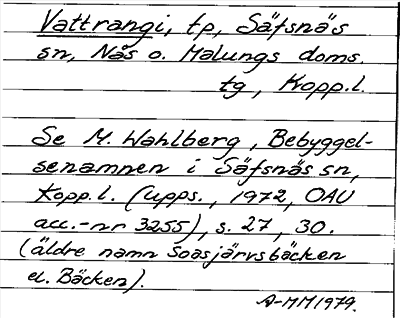 Vattrangi, tp, Säfsnäs
sn, Nås o. Malungs doms.
tg, Kopp.l.
Se M. Wahlberg, Bebyggel-
senamnen i Säfsnäs sn,
Kopp.l. (upps., 1972, OAU
acc.-nr 3255), s. 27, 30.
(äldre namn Soasjärvsbäcken
el. Bäcken).
A-MM1979.